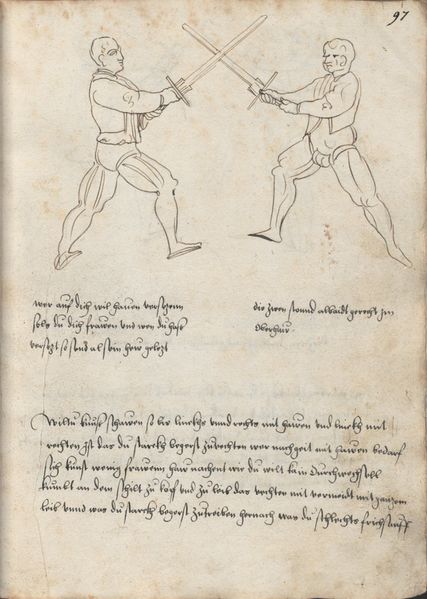 97
wer auf dich wil hauen versezenn
soltu dich frawen und wen du hast
versezt so stand als vin hew gelegt
die zwen stannd all baidt gerecht Im
Oberhaw
Wiltu kunst schawen so bis linckhs unnd rechts mit hawen und linckh mit
rechten ist das du starckh begerst zuvechten wer nachgeit mit hawen bedarf
sich kunst wenig frawenn haw nachent wie du welt kain durchwechsell
kumbt an dem schilt zu kopf und zu leib das vechten nit vermeidt mit ganzem
leib unnd was du starckh begerst zutreiben hernach was du schlechts frisch auff